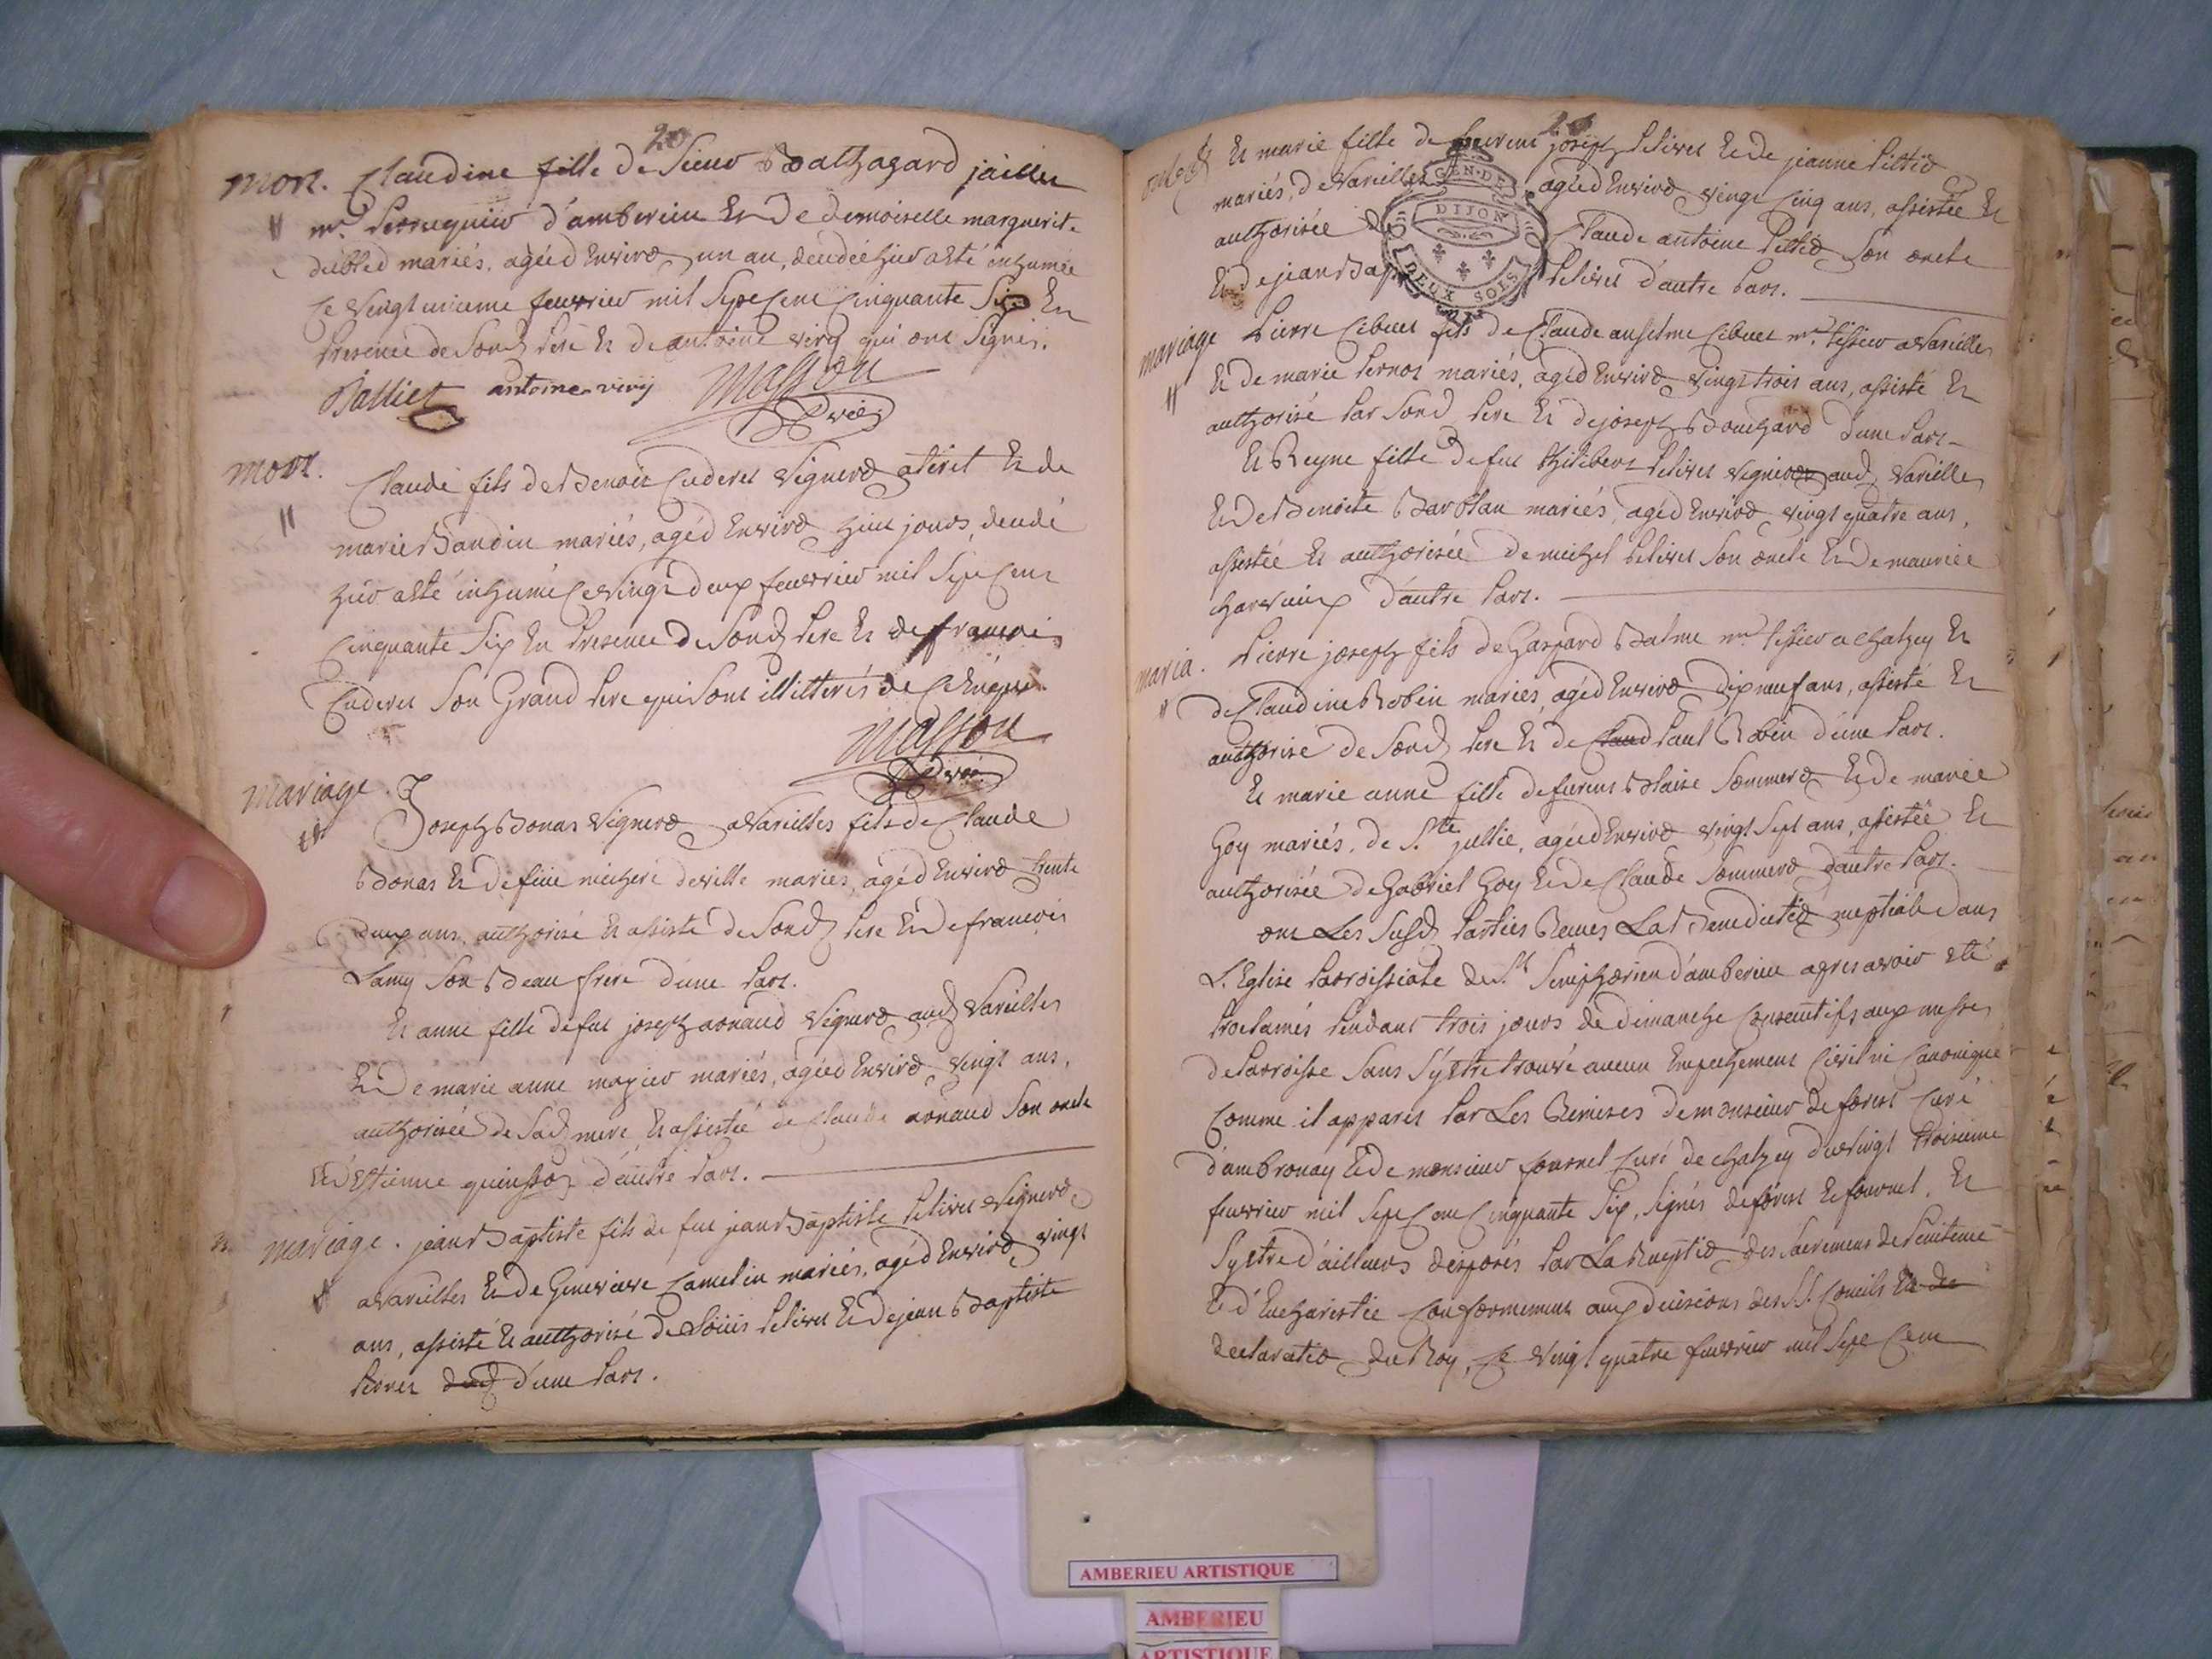 20
mort. Claudine fille de Sieur Balthazard jaillier
mr. Perruquier d'amberieu Et De demoiselle marguerite
mariés, agéed Environ un an, decedée hier a eté inhumée
Ce vingt unieme fevrier mil Sept Cent Cinquante Six En
Presence de Sond Pere Et de antoine viry qui ont Signés.
Jalliet antoine viry Masson
vic.
mort.
Claude fils de Benoit Cuderet Vigneron a tiret Et de
marie Baudin mariés, agéd Environ huit jours, decedé
hier a eté inhumé Ce vingt deux fevrier mil Sept Cent
Cinquante Six En Presence de Sond Pere Et de francois
Cuderet Son Grand Pere qui Sont illitterés de Ce Enquis.
Masson
vic.
Mariage. Joseph Bonas Vigneron a Vareilles fils de Claude
Bonas Et de fue deville mariés, agéd Environ trente
deux ans, authorisé Et assisté de Sond Pere Et De francois
Lamy Son Beau frere d'une Part.
Et anne fille de fut joseph arnaud Vigneron aud Vareilles
Et De marie anne mariés, agéed Environ Vingt ans,
authorisée de Sad mere, Et assistée de Claude arnaud Son oncle
Et d'Estienne quinson d'autre Part.
mariage. jean Baptiste fils de fut jean Baptiste Pelivet Vigneron
a Vareilles Et De Genevieve Camelin mariés, agéd Environ vingt
ans, assisté Et authorisé De Loüis Pelivet Et De jean Baptiste
Pernet d'une Part.
20
Et marie fille de joseph Pelivet Et de jeanne
mariés, de Vareilles agéed Environ vingt Cinq ans, assistée Et
authorisée Claude antoine Son oncle
Et De jean Bap Pelivet d'autre Part.
GEN. DE DIJON
DEUX SOLS
mariage Pierre Cibuet fils de Claude anselme Cibuet mr. tissier a Vareilles
Et de marie Pernot mariés, agéd Environ Vingt trois ans, assisté Et
authorisé Par Sond Pere Et de joseph Bouchard d'une Part
Et Reyne fille de fut Philibert Pelivet vigneron aud Vareilles
Et De Benoite mariés, agéd Environ vingt quatre ans,
assistée Et authorisée De michel Pelivet Son oncle Et De maurice
d'autre Part.
maria. Pierre joseph fils de Gaspard Balme mr. tissier a Chatzey Et
de Claudine Robin mariés, agéd Environ dix neuf ans, assisté Et
authorisé de Sond Pere Et de Claud Paul Robin d'une Part.
Et marie anne fille de furent Blaise Sommeron Et De marie
Goy mariés, de Ste jullie, agéed Environ vingt Sept ans, assistée Et
authorisée de Gabriel Goy Et De Claude Sommeron d'autre Part.
ont Les Susd Parties Receues La Benediction nuptiale dans
L'Eglise Paroissiale de St Simphorien d'amberieu apres avoir eté
Proclamés Pendant trois jours de dimanche Consecutifs aux messes
de Paroisse Sans S'y etre trouvé aucun Empechement Civil ni Canonique
Comme il apparet Par Les Remises de monsieur de forest Curé
d'ambronay Et De monsieur fournet Curé de Chatzey du Vingt troisieme
fevrier mil Sept Cent Cinquante Six, Signés de forest Et fournet, Et
S'y etre d'ailleurs disposés Par La Reception des Sacremens de Penitence
Et d'Eucharistie Conformement aux decisions des SS. Conciles Et de
declaration du Roy, Ce Vingt quatre fevrier mil Sept Cent
AMBERIEU ARTISTIQUE
AMBERIEU
ARTISTIQUE